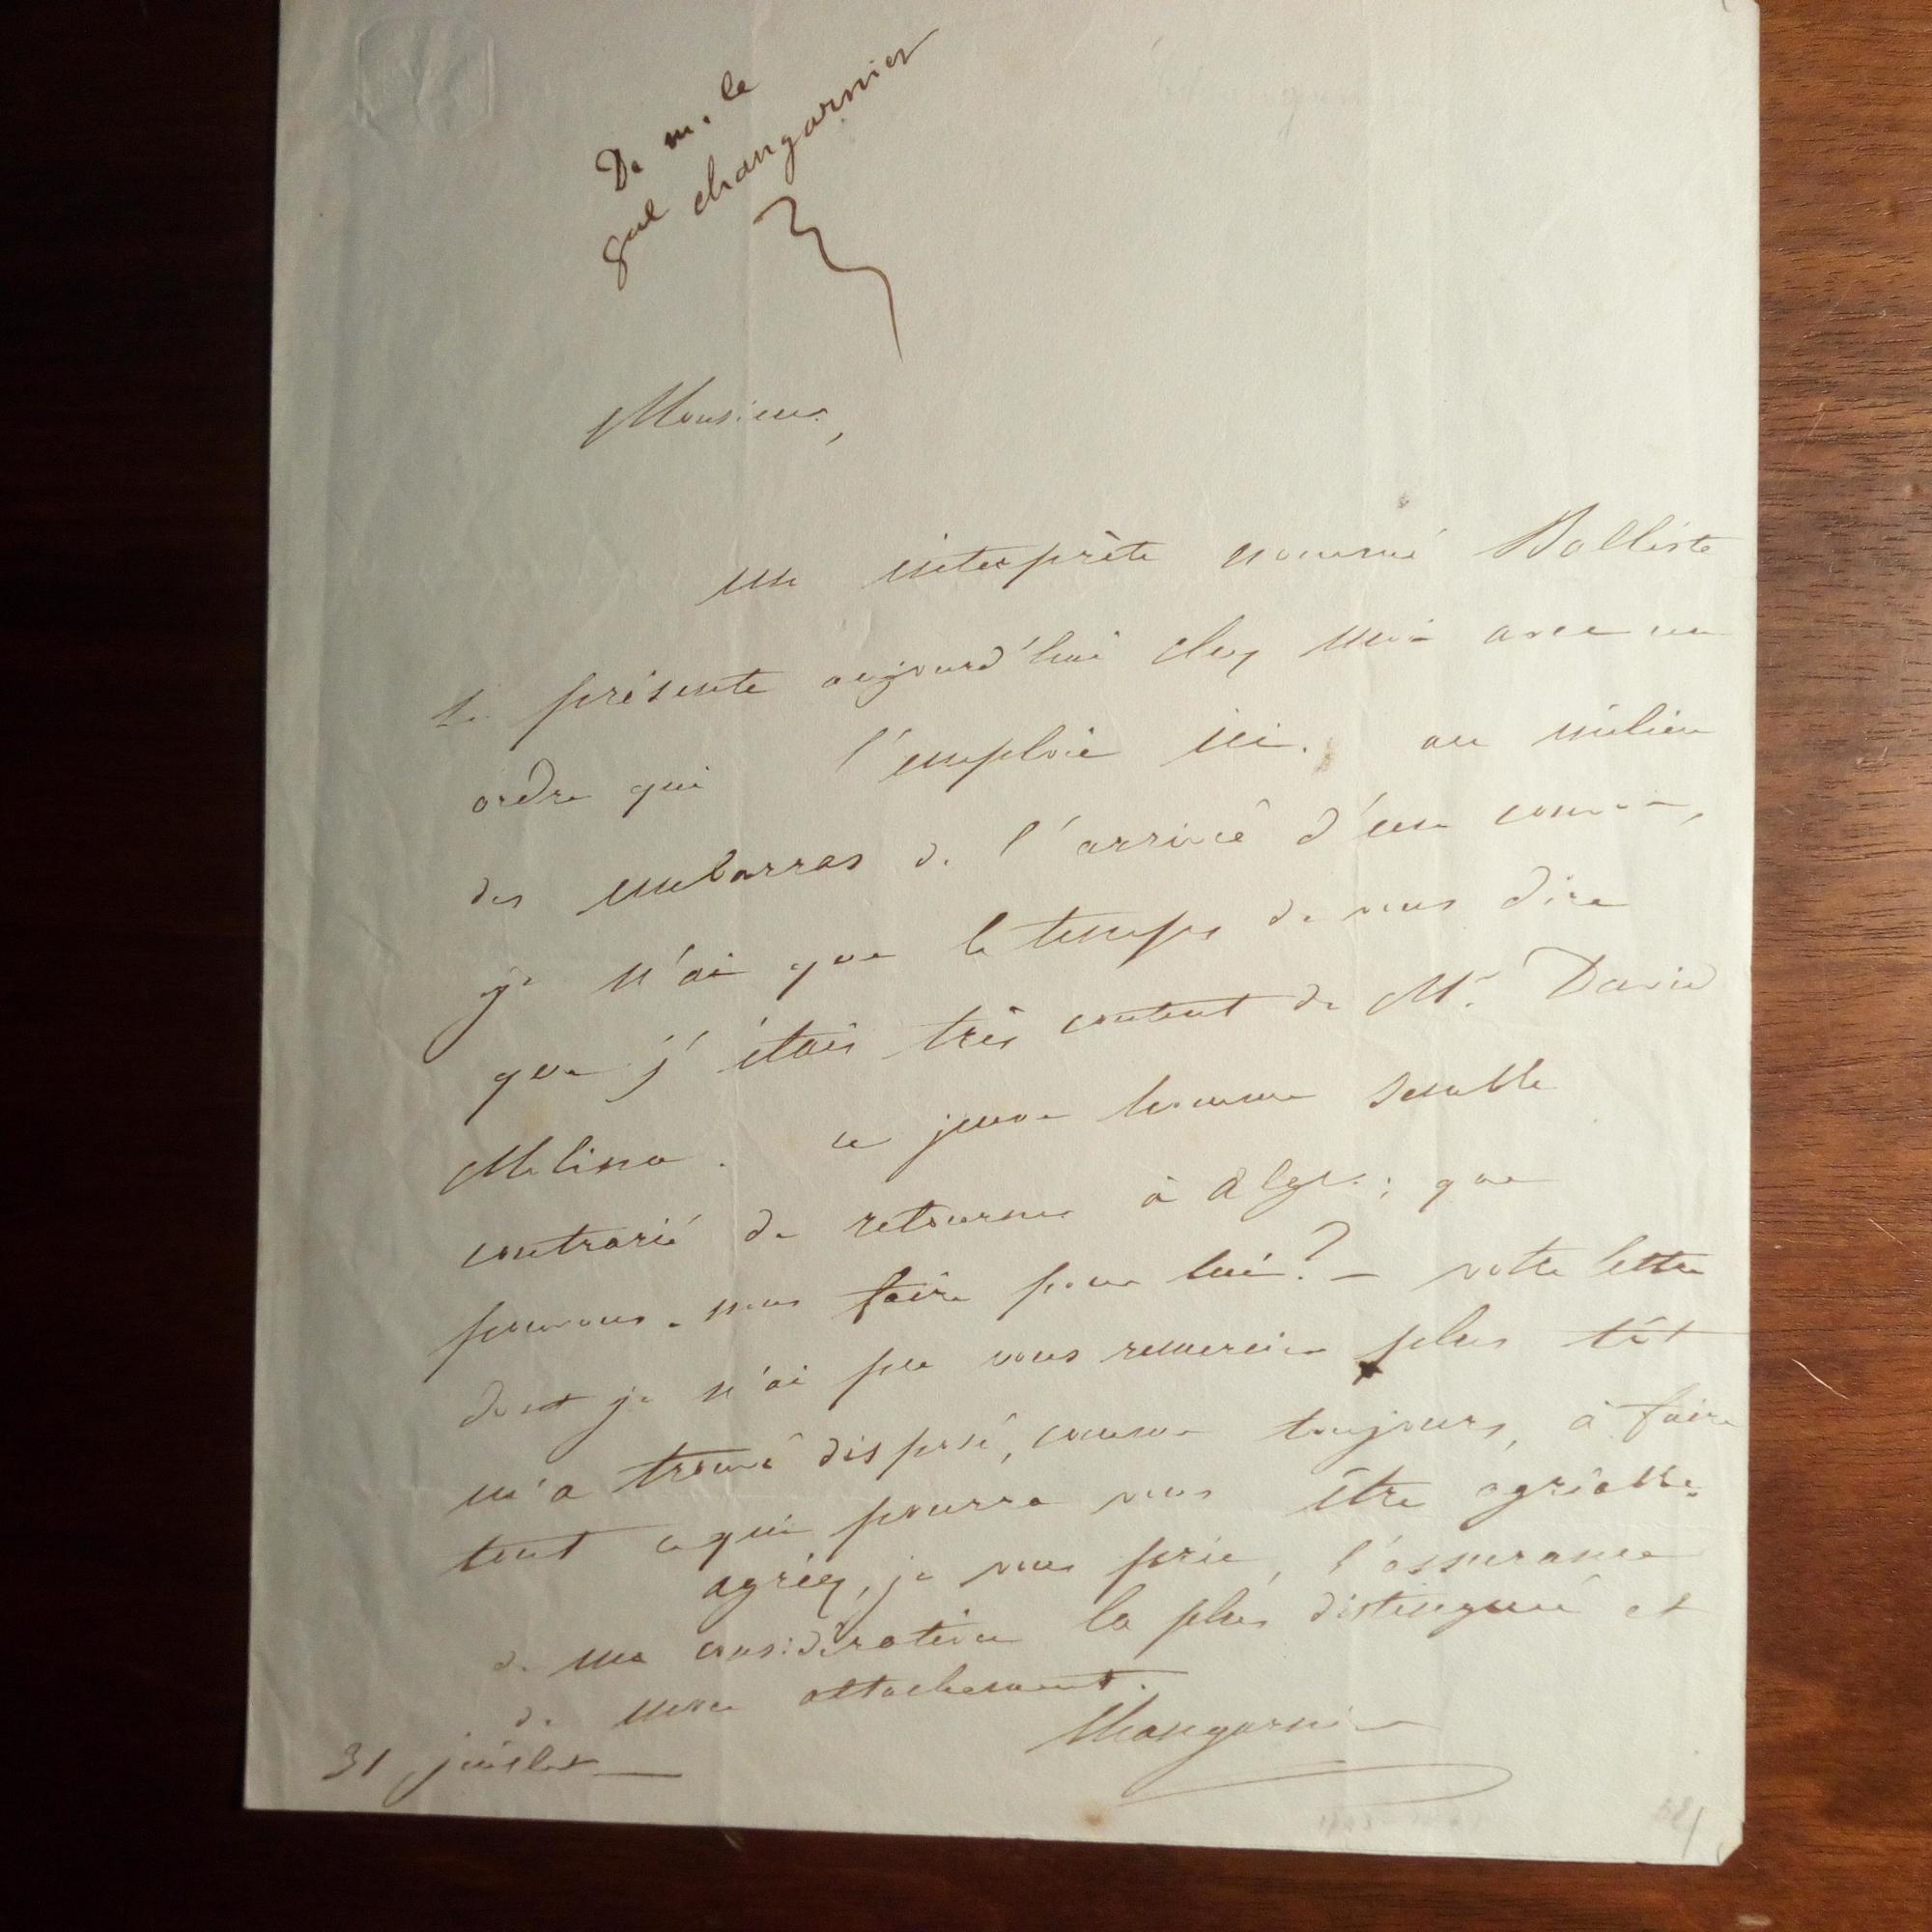 De m. le
gal changarnier
Monsieur,
un interprète nommé Balliste
se présente aujourd'hui chez moi avec un
ordre qui l'emploie ici. au milieu
des embarras de l'arrivée d'un
je n'ai que le temps de vous dire
que j'étais très content de Mr. David
Molina. ce jeune homme semble
contrarié de retourner à alger; que
pouvons-nous faire pour lui? — votre lettre
dont je n'ai pu vous remercier plus tôt
m'a trouvé disposé, comme toujours, à faire
tout ce qui pourra vous être agréable.
agréez, je vous prie, l'assurance
de ma considération la plus distinguée et
de mon attachement.
Changarnier
31 juillet —